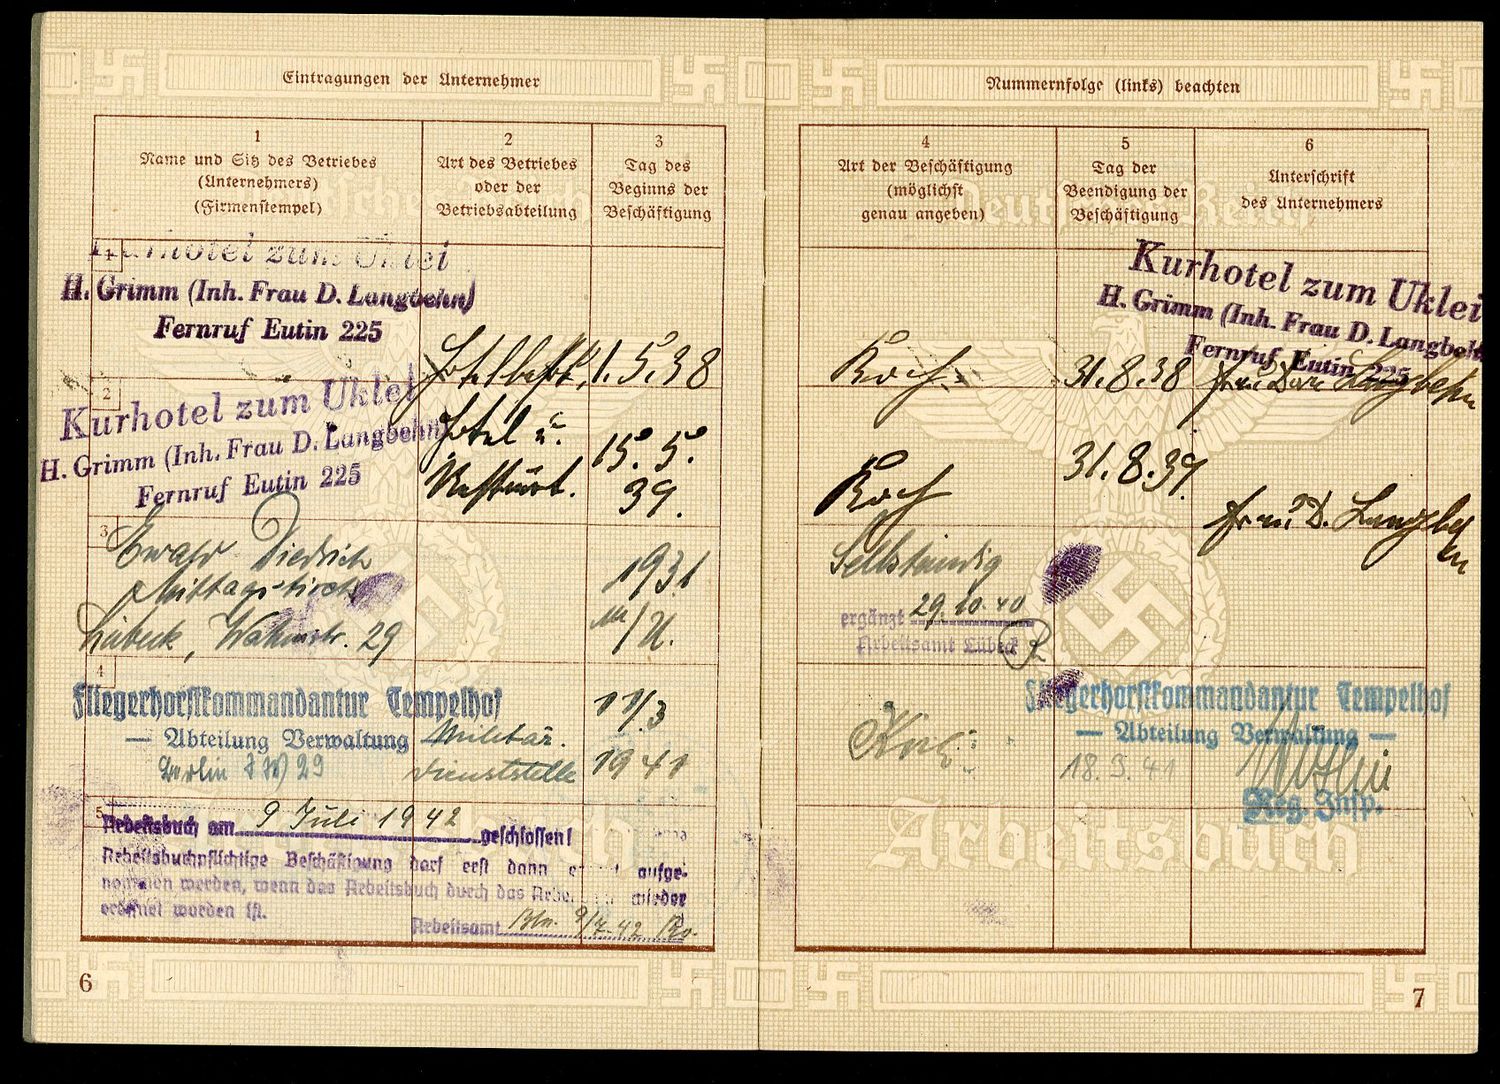 Eintragungen der Unternehmer
1
Name und Sitz des Betriebes
(Unternehmers)
(Firmenstempel)
2
Art des Betriebes
oder der
Betriebsabteilung
3
Tag des
Beginns der
Beschäftigung
1
Kurhotel zum Uklei
H. Grimm (Inh. Frau D. Langbehn)
Fernruf Eutin 225
1.5.38
2
Kurhotel zum Uklei
H. Grimm (Inh. Frau D. Langbehn)
Fernruf Eutin 225
Hotel u.
Restaurt.
15.5.
39.
3
Ewald Diedrich
Mittagstisch
Lübeck, Wahmstr. 29
1931
4
Fliegerhorstkommandantur Tempelhof
— Abteilung Verwaltung
Berlin SW 29
Militär.
Dienststelle
11/3
1941
5
Arbeitsbuch am 9 Juli 1942 geschlossen!
Arbeitsbuchpflichtige Beschäftigung darf erst dann aufge-
nommen werden, wenn das Arbeitsbuch durch das wieder
eröffnet worden ist.
Arbeitsamt Bln. 9/7.42 Ro.
6
Nummernfolge (links) beachten
4
Art der Beschäftigung
(möglichst
genau angeben)
5
Tag der
Beendigung der
Beschäftigung
6
Unterschrift
des Unternehmers
Deutsches Reich
Kurhotel zum Uklei
H. Grimm (Inh. Frau D. Langbehn
Fernruf Eutin 225
Koch
31.8.38
Frau Dora Langbehn
Koch
31.8.39.
Frau D. Langbehn
Selbständig
ergänzt 29.10.40
Arbeitsamt Lübeck
Fliegerhorstkommandantur Tempelhof
— Abteilung Verwaltung —
18.9.41
Reg. Insp.
Arbeitsbuch
7